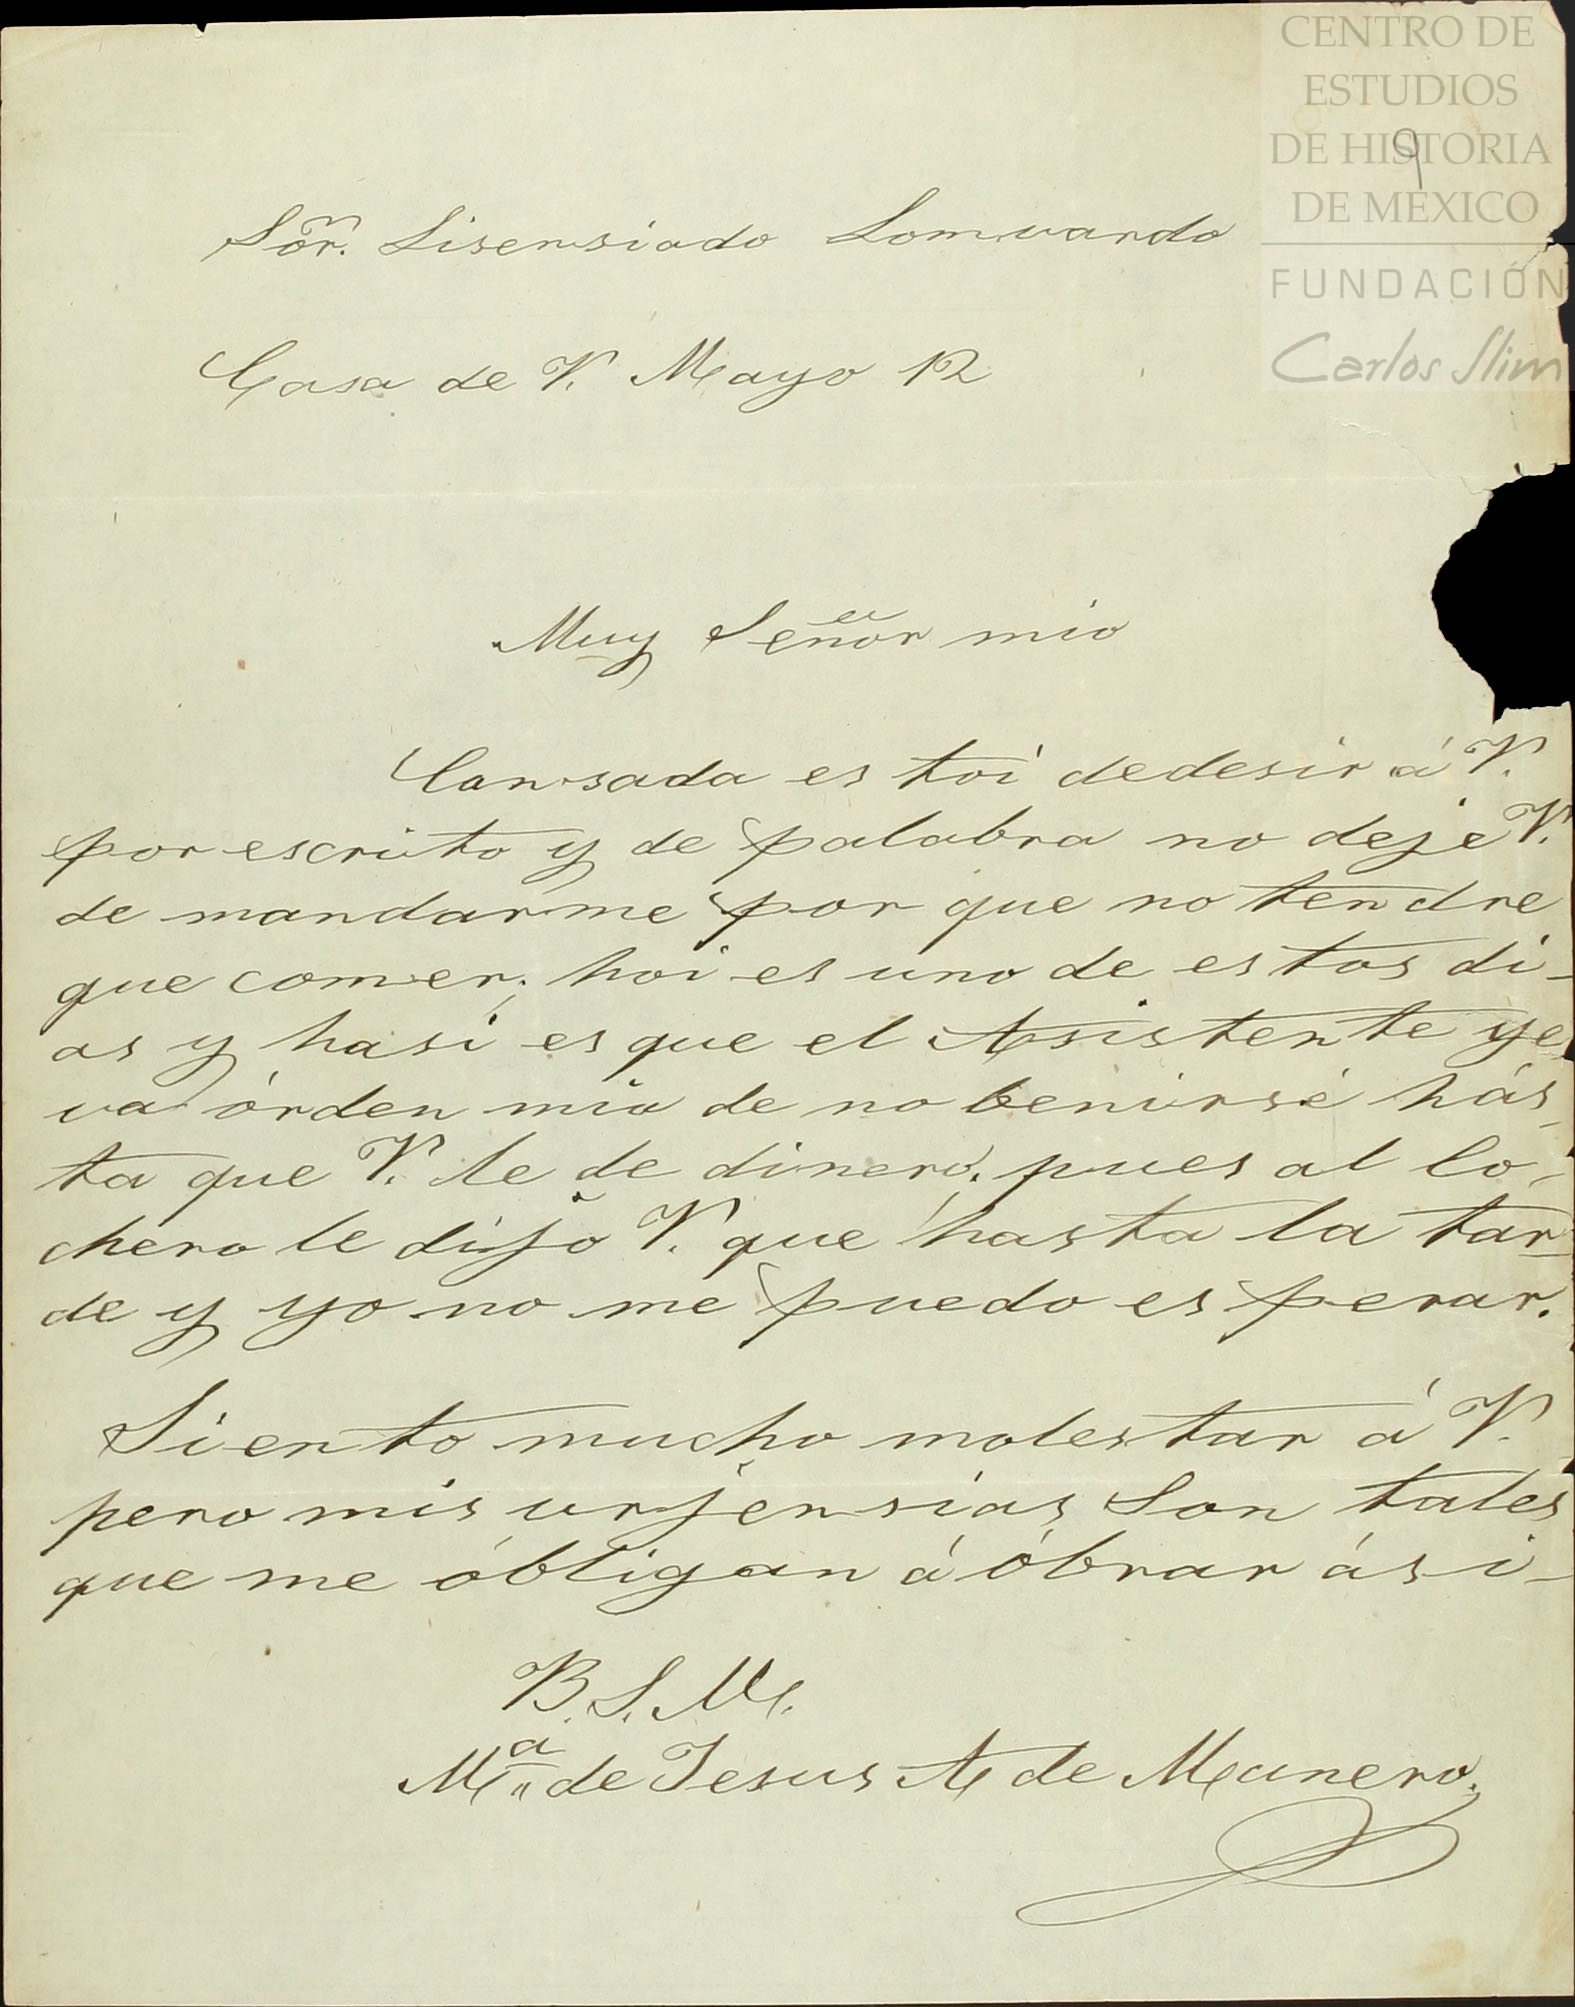 CENTRO DE
ESTUDIOS
DE HISTORIA
DE MÉXICO
FUNDACIÓN
Carlos Slim
9
Sõr. Lisensiado Lomvardo
Casa de V. Mayo 12
Muy Señor mio
Cansada es toi dedesir á V.
por escrito y de palabra no deje V.
de mandarme por que no tendre
que comer; hoi es uno de estos di-
as y hasi es que el Asistente ye
va órden mia de no benirse hás
ta que V. le de dinero, pues al Co-
chero le dijo V. que hasta la tar
de y yo no me puedo es perar.
Siento mucho molestar á V.
pero mis urjensias son tales
que me óbligan á óbrar ási-
B. S. M.
Mª de Jesus A de Munero.